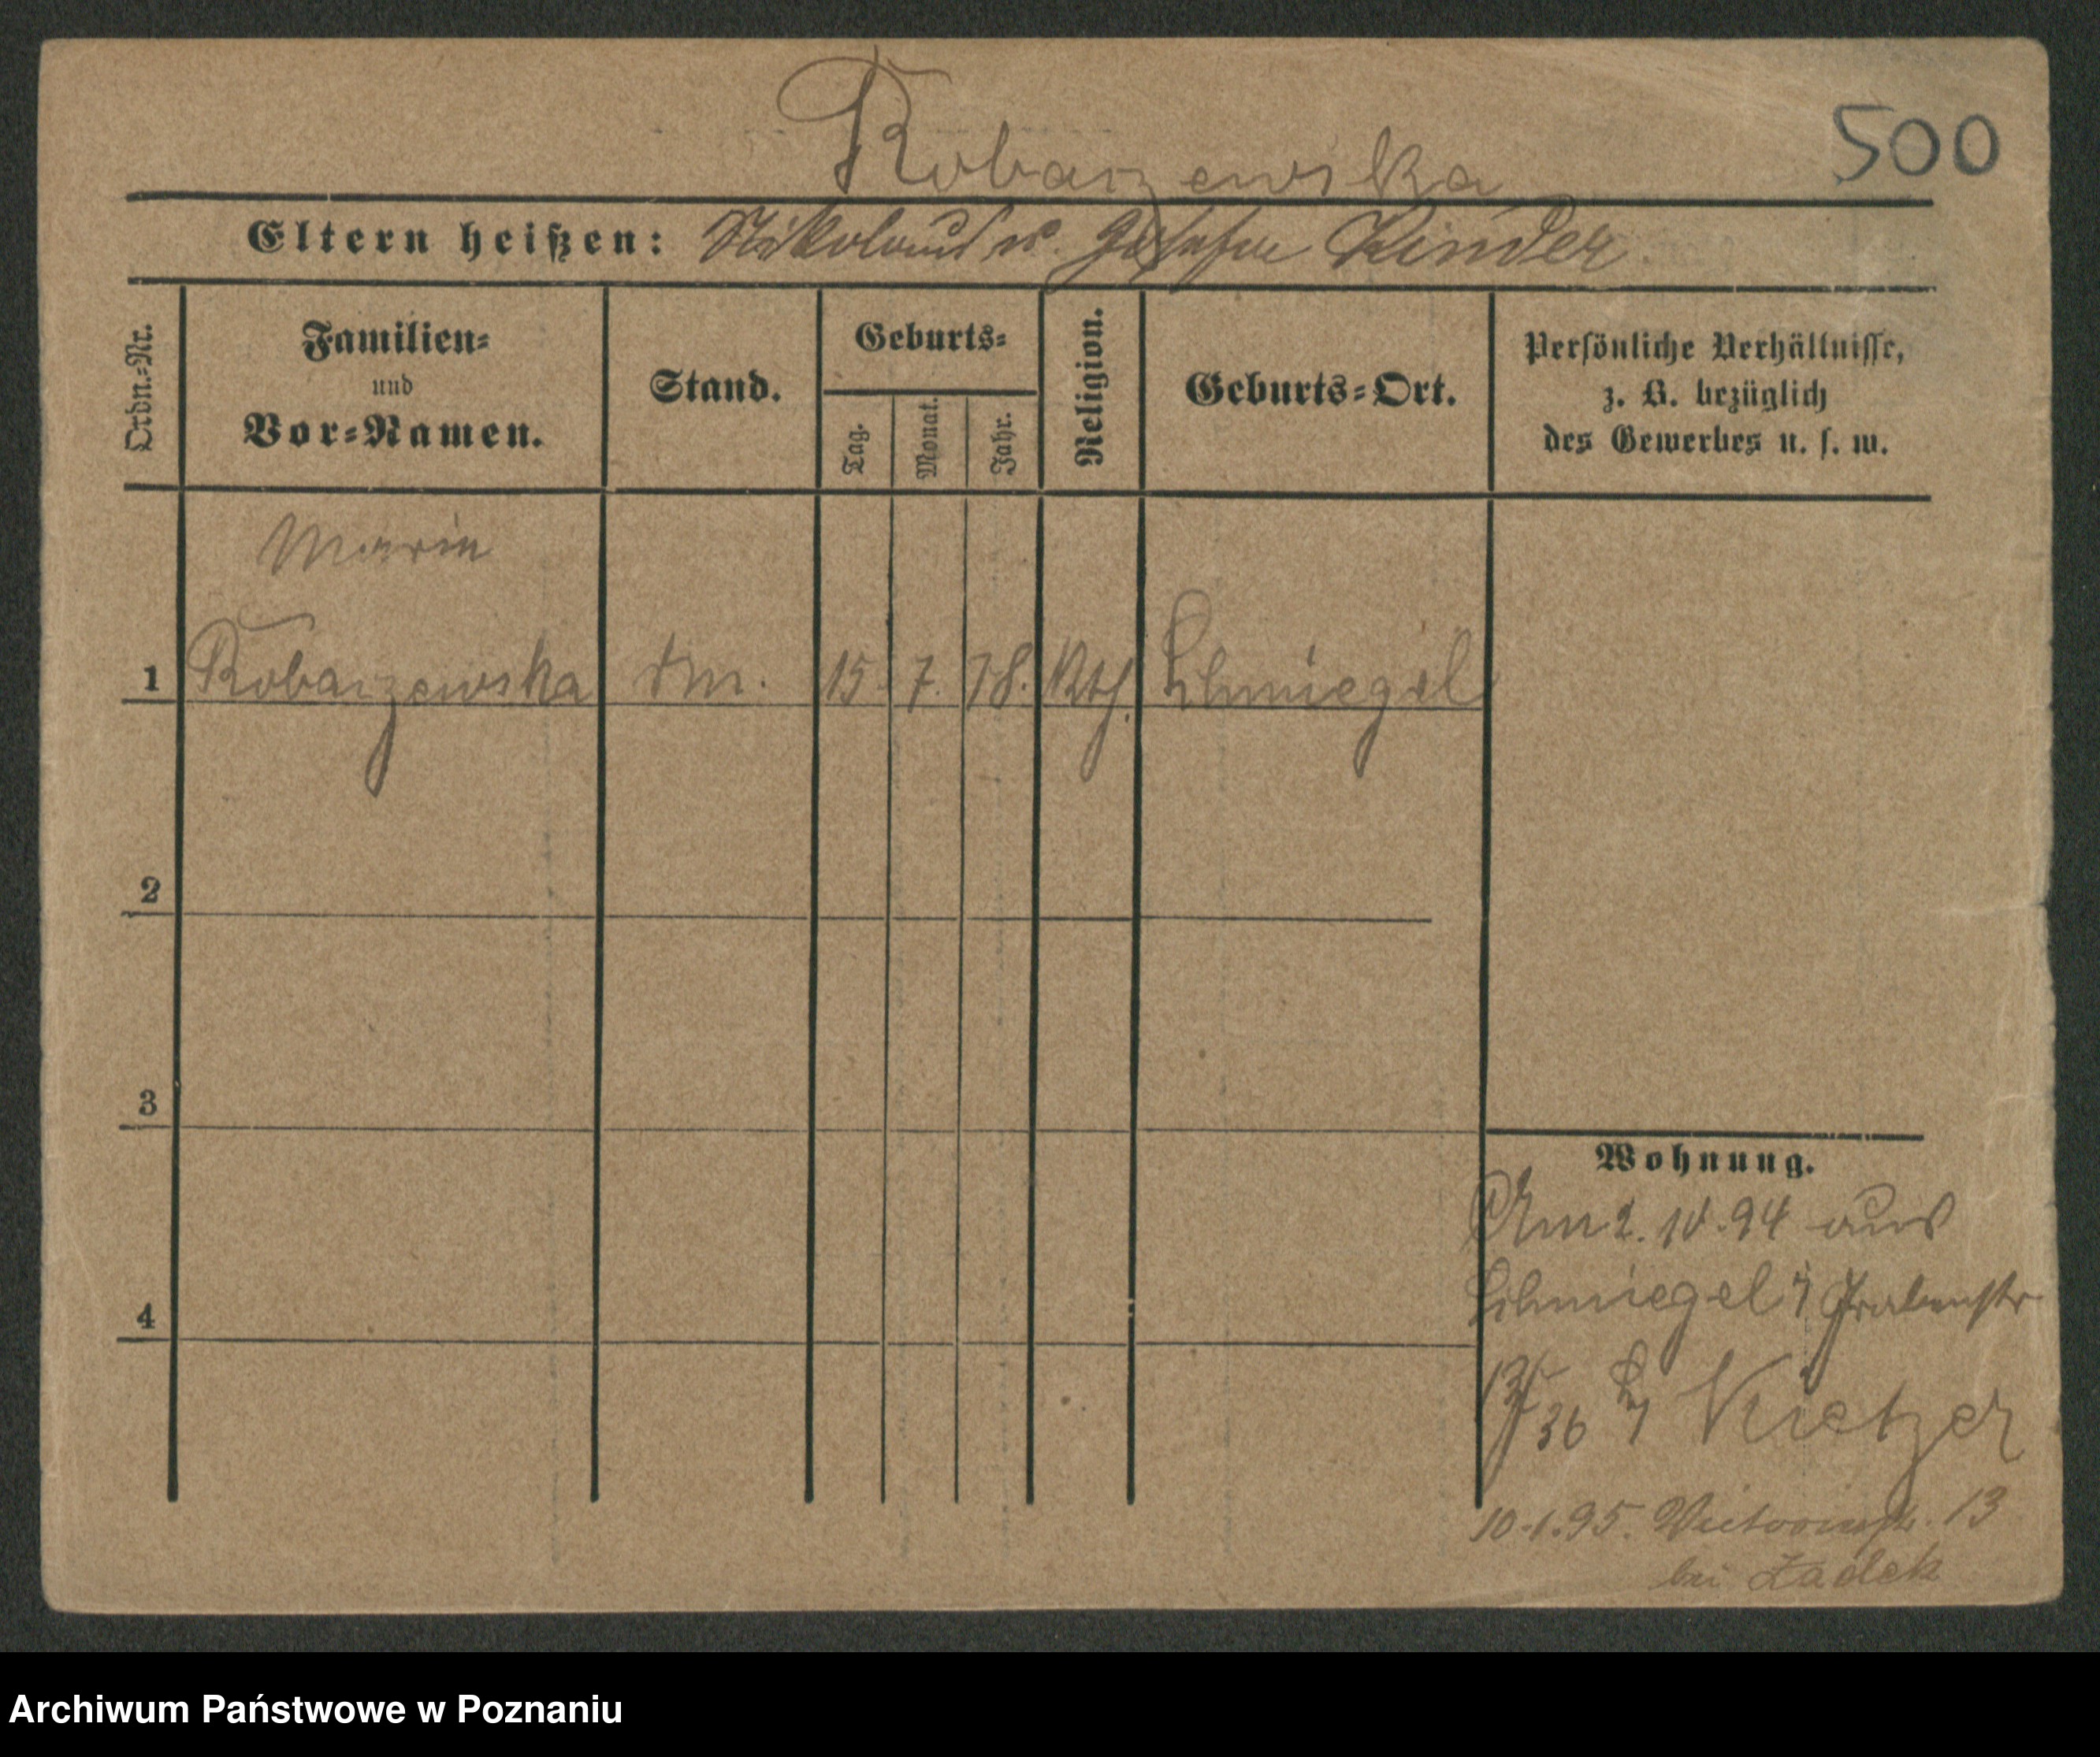 Robaszewska
500
Eltern heißen: Nikolaus u. Josefa Kinder
Ordn.=Nr.
Familien=
und
Vor=Namen.
Stand.
Geburts=
Tag.
Monat.
Jahr.
Religion.
Geburts=Ort.
Persönliche Verhältnisse,
z. B. bezüglich
des Gewerbes u. s. w.
Marie
1 Robaszewska dm. 15. 7. 78. Kth. Schmiegel
2
3
4
Wohnung.
Am 2. 10. 94 aus
Schmiegel Grabenstr
36 Kietzer
10.1.95. Victoriastr. 13
bei Zadek
Archiwum Państwowe w Poznaniu